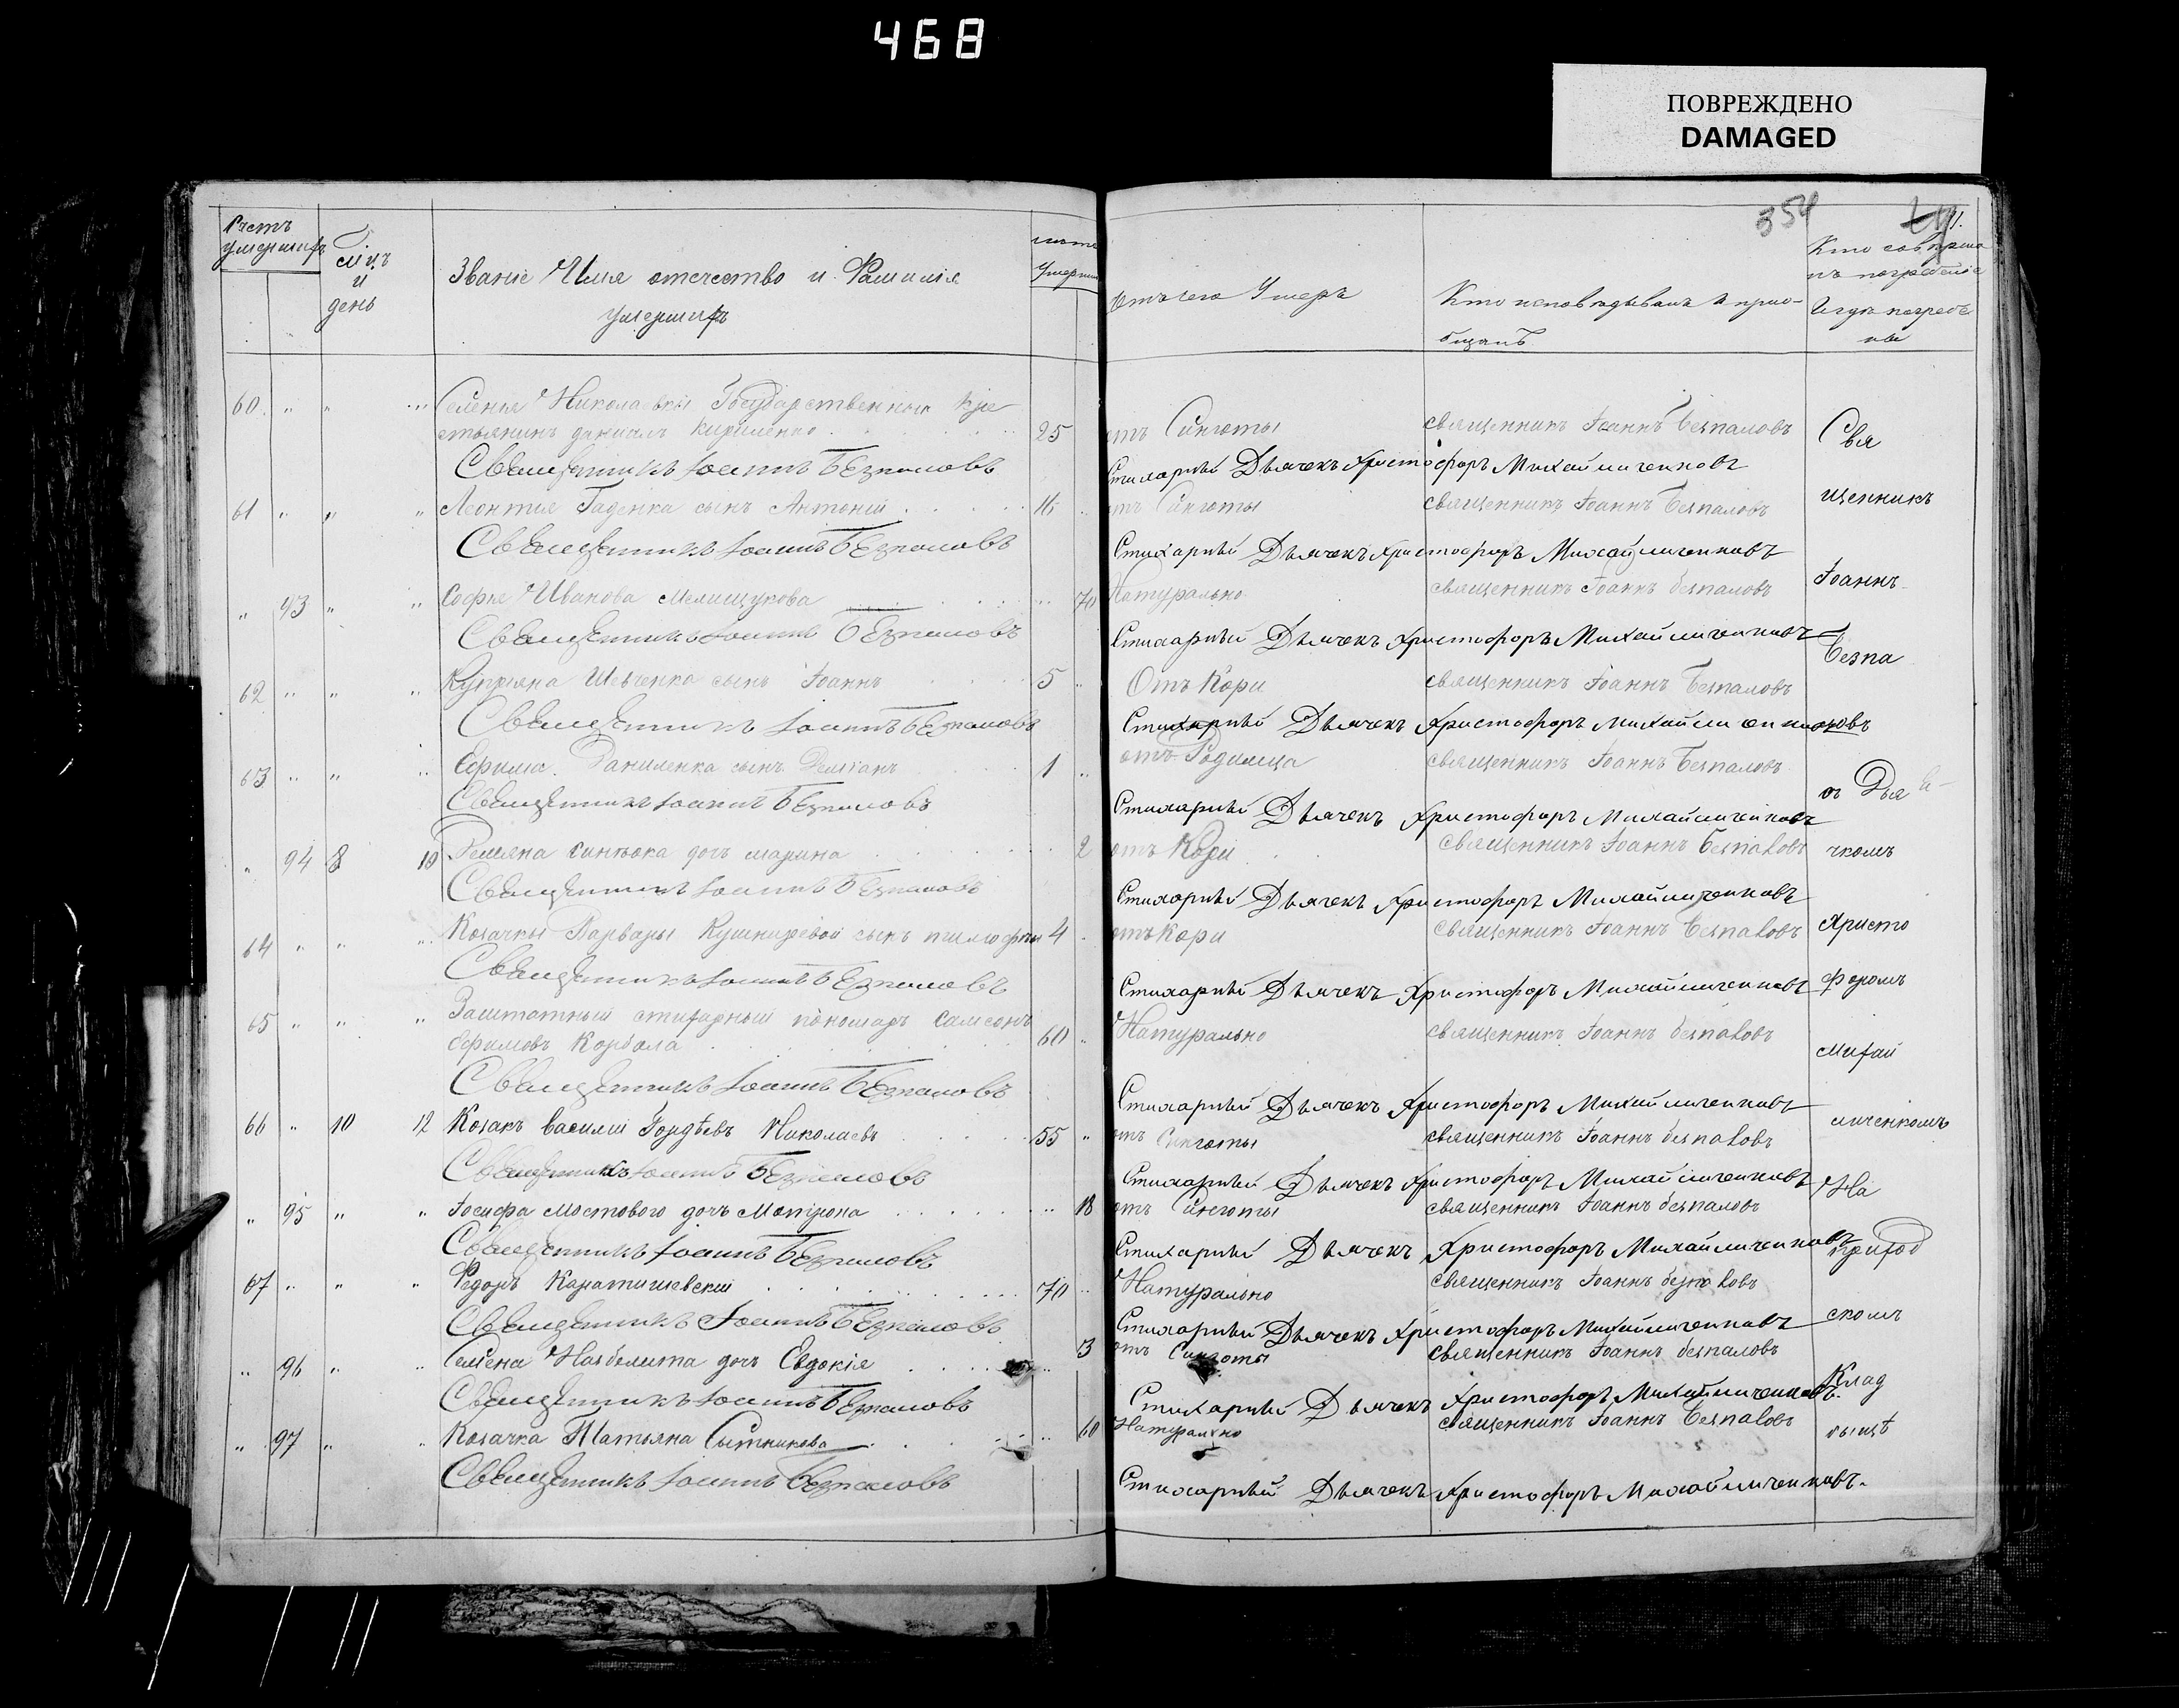 468
ПОВРЕЖДЕНО
DAMAGED
354
Счетъ умершихъ
день
Званіе Имя отечество и Фамилія
умершихъ
лѣта
отъ чего Умеръ
Кто исповѣдывалъ и прио-
бщалъ
60. " " " Селенія Николаевки Государственный кре
стьянинъ Даніилъ Кириленко 25 отъ Синготы священникъ Іоаннъ Безпаловъ Свя
Священникъ Іоаннъ Безпаловъ Стихарный Дьячекъ Христофоръ Михайличенковъ
61 " " " Леонтія Гаденка сынъ Антоній 16 отъ Синготы священникъ Іоаннъ Безпаловъ щенникъ
Священникъ Іоаннъ Безпаловъ Стихарный Дьячекъ Христофоръ Михайличенковъ
" 93 " " Софья Иванова Мелищукова 70 Натурально священникъ Іоаннъ безпаловъ Іоаннъ
Священникъ Іоаннъ Безпаловъ Стихарный Дьячекъ Христофоръ Михайличенковъ
62 " " " Купріяна Шевченко сынъ Іоаннъ 5 " Отъ Кори священникъ Іоаннъ Безпаловъ Безпа
Священникъ Іоаннъ Безпаловъ Стихарный Дьячекъ Христофоръ Михайличенковъ
63 " " " Ефима Даниленка сынъ Деміанъ 1 " отъ Родимца священникъ Іоаннъ Безпаловъ
Священникъ Іоаннъ Безпаловъ Стихарный Дьячекъ Христофоръ Михайличенковъ съ Дья
" 94 8 10 дочь марина 2 отъ Кори священникъ Іоаннъ Безпаловъ чкомъ
Священникъ Іоаннъ Безпаловъ Стихарный Дьячекъ Христофоръ Михайличенковъ
64 " " " Козачки Варвары Кушниревой сынъ 4 отъ кори священникъ Іоаннъ Безпаловъ Христо
Священникъ Іоаннъ Безпаловъ Стихарный Дьячекъ Христофоръ Михайличенковъ форомъ
65 " " " Заштатный стихарный пономарь Самсонъ
Ефимовъ Корбала 60 " Натурально священникъ Іоаннъ безпаловъ михай
Священникъ Іоаннъ Безпаловъ Стихарный Дьячекъ Христофоръ Михайличенковъ
66 " 10 12 Козакъ Василій Гордѣевъ Николаевъ 55 " отъ Синготы священникъ Іоаннъ безпаловъ личенкомъ
Священникъ Іоаннъ Безпаловъ Стихарный Дьячекъ Христофоръ Михайличенковъ
" 95 " " Іосифа Мостового дочь Мотрона 18 отъ Синготы священникъ Іоаннъ безпаловъ На
Священникъ Іоаннъ Безпаловъ Стихарный Дьячекъ Христофоръ Михайличенковъ приход
67 " " " Федоръ Каратишевскій 70 " Натурально священникъ Іоаннъ безпаловъ
Священникъ Іоаннъ Безпаловъ Стихарный Дьячекъ Христофоръ Михайличенковъ скомъ
" 96 " " Семена дочь Евдокія 3 отъ Синготы священникъ Іоаннъ безпаловъ
Священникъ Іоаннъ Безпаловъ Стихарный Дьячекъ Христофоръ Михайличенковъ. Клад
" 97 " " Козачка Татьяна Сытникова 60 Натурально священникъ Іоаннъ Безпаловъ бищѣ
Священникъ Іоаннъ Безпаловъ Стихарный Дьячекъ Христофоръ Михайличенковъ.